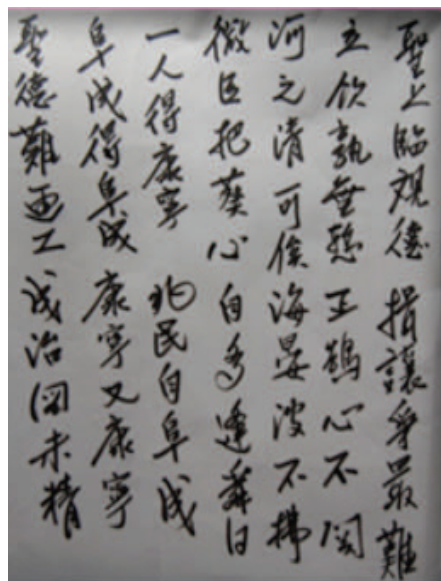 聖上臨観德 揖讓爭最難
立飲孰無愁 正鵠心不関
河之清可俟 海晏波不揚
微臣把葵心 自多逢舜日
一人得康寧 兆民自阜成
阜成得阜成 康寧又康寧
聖德難画工 成治図未精